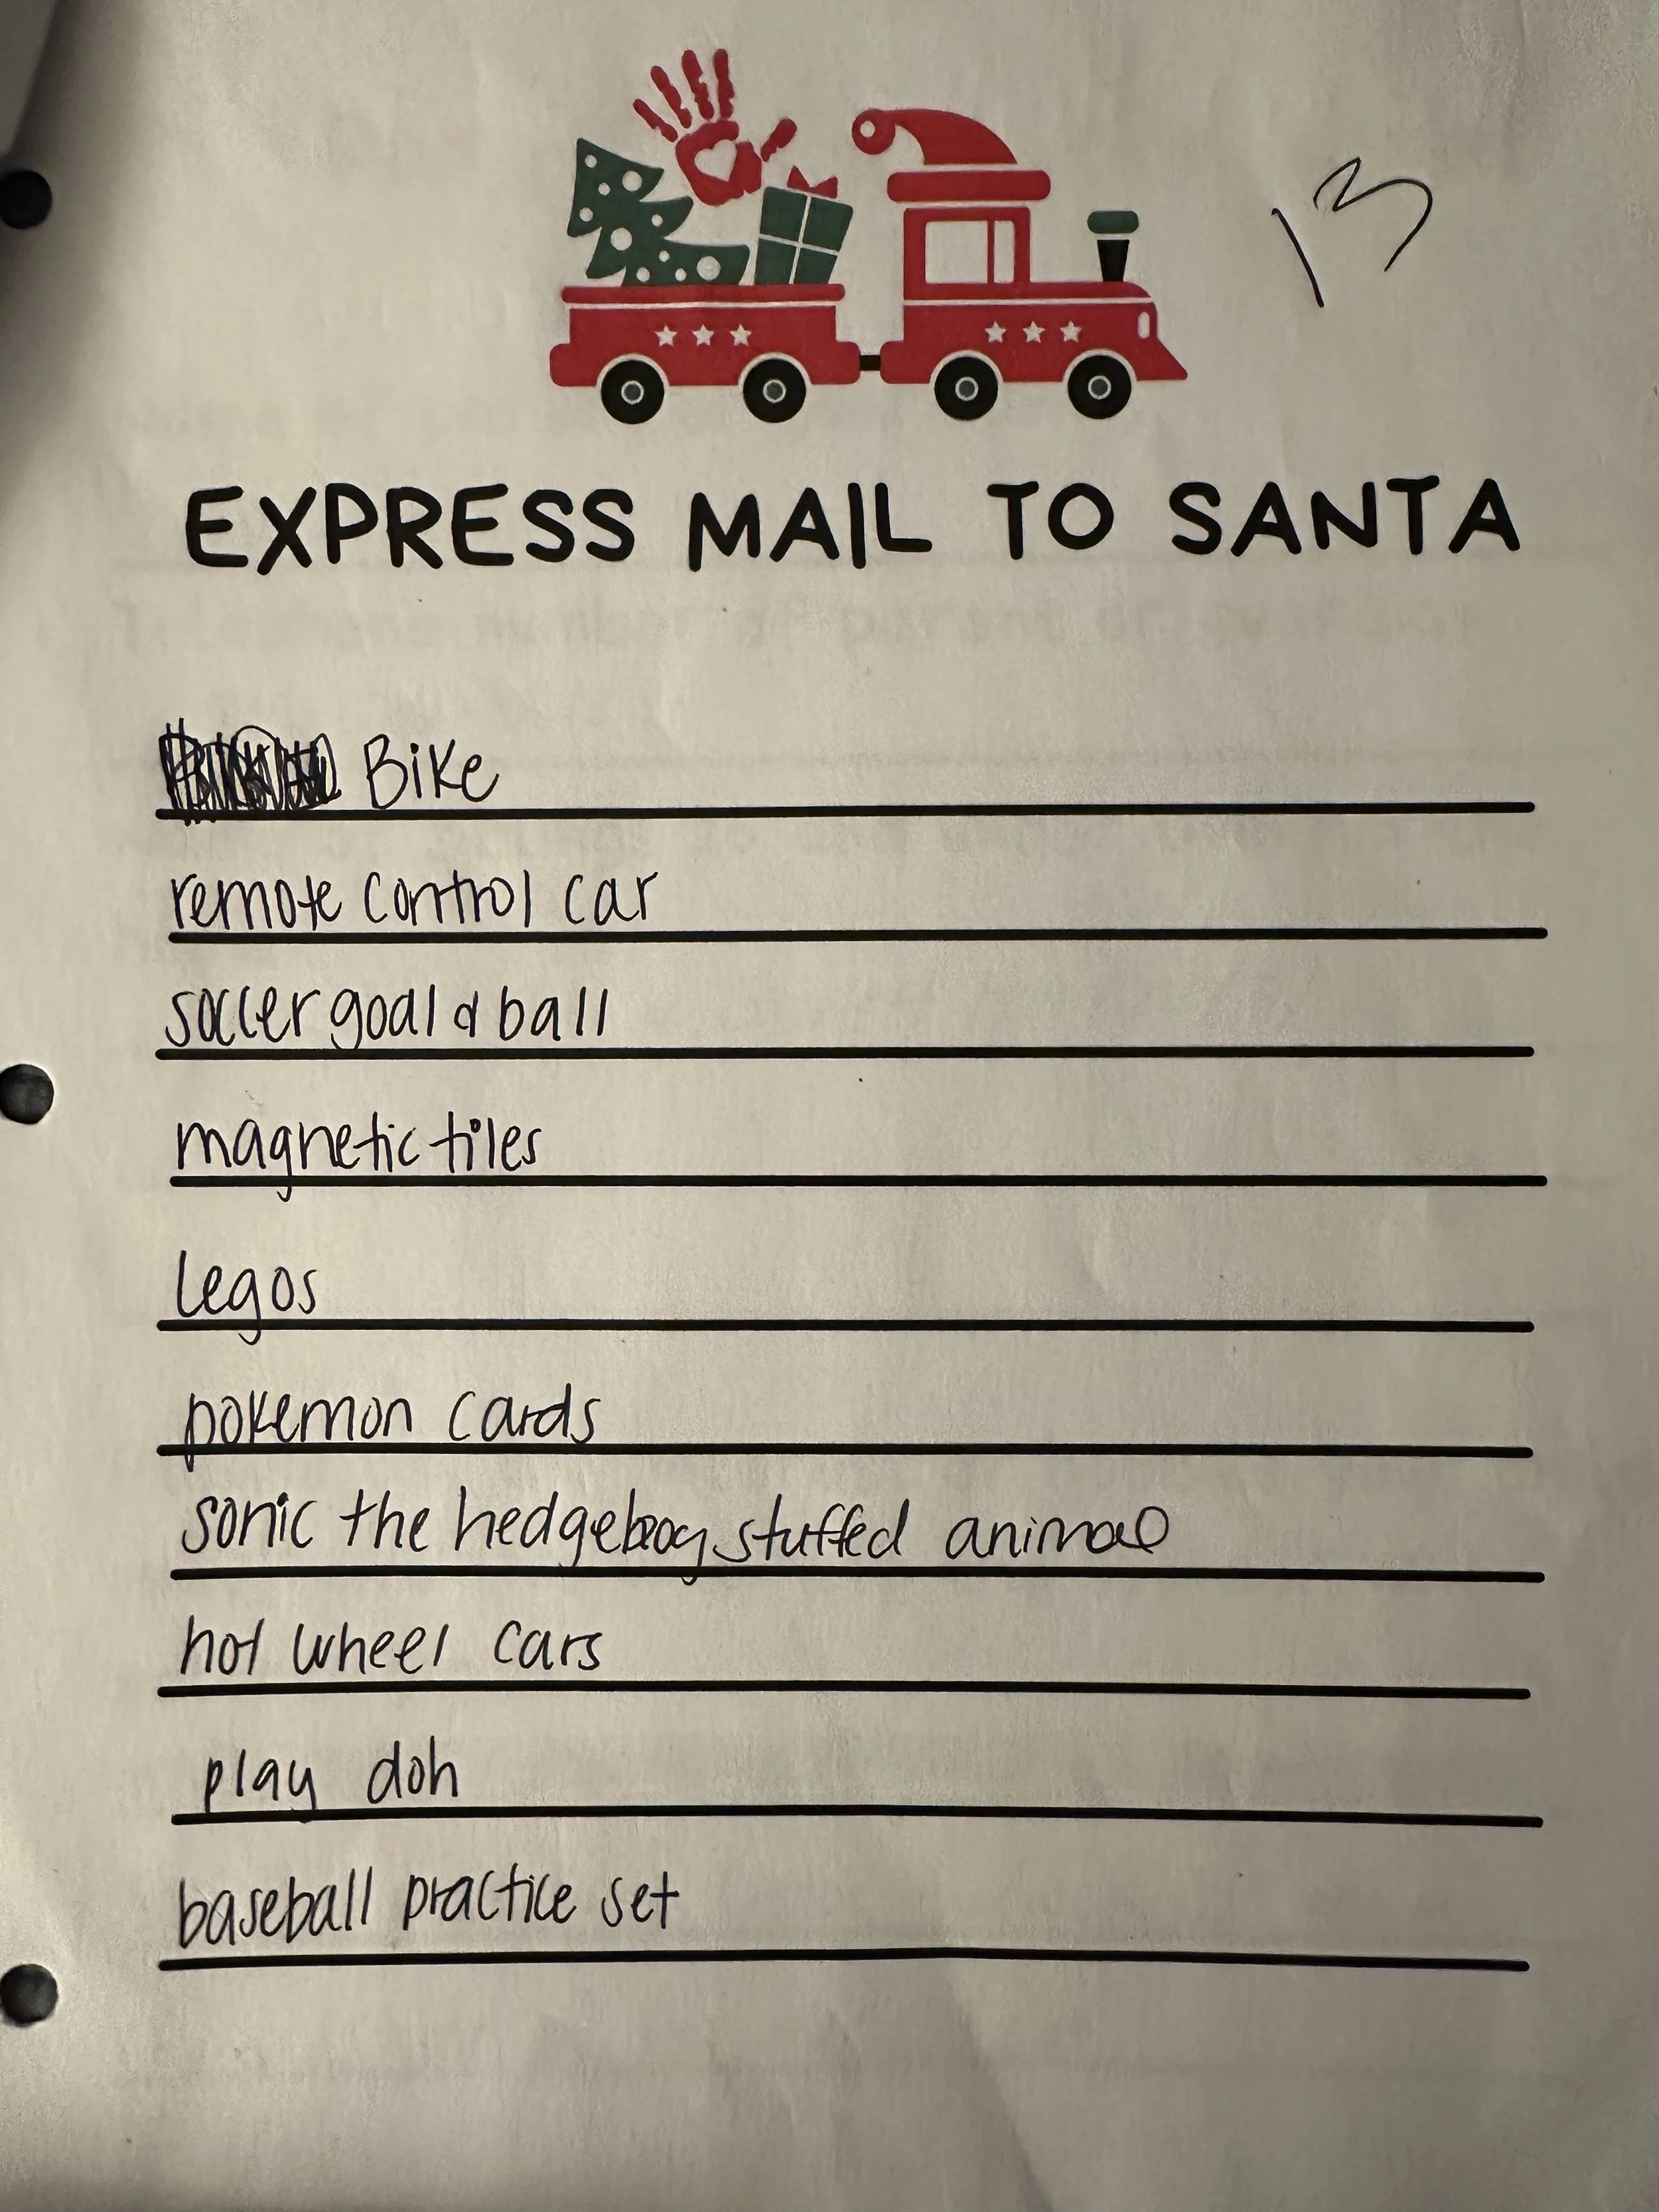 13
EXPRESS MAIL TO SANTA
Bike
remote control car
soccer goal & ball
magnetic tiles
legos
pokemon cards
sonic the hedgehog stuffed animal
hot wheel cars
play doh
baseball practice set